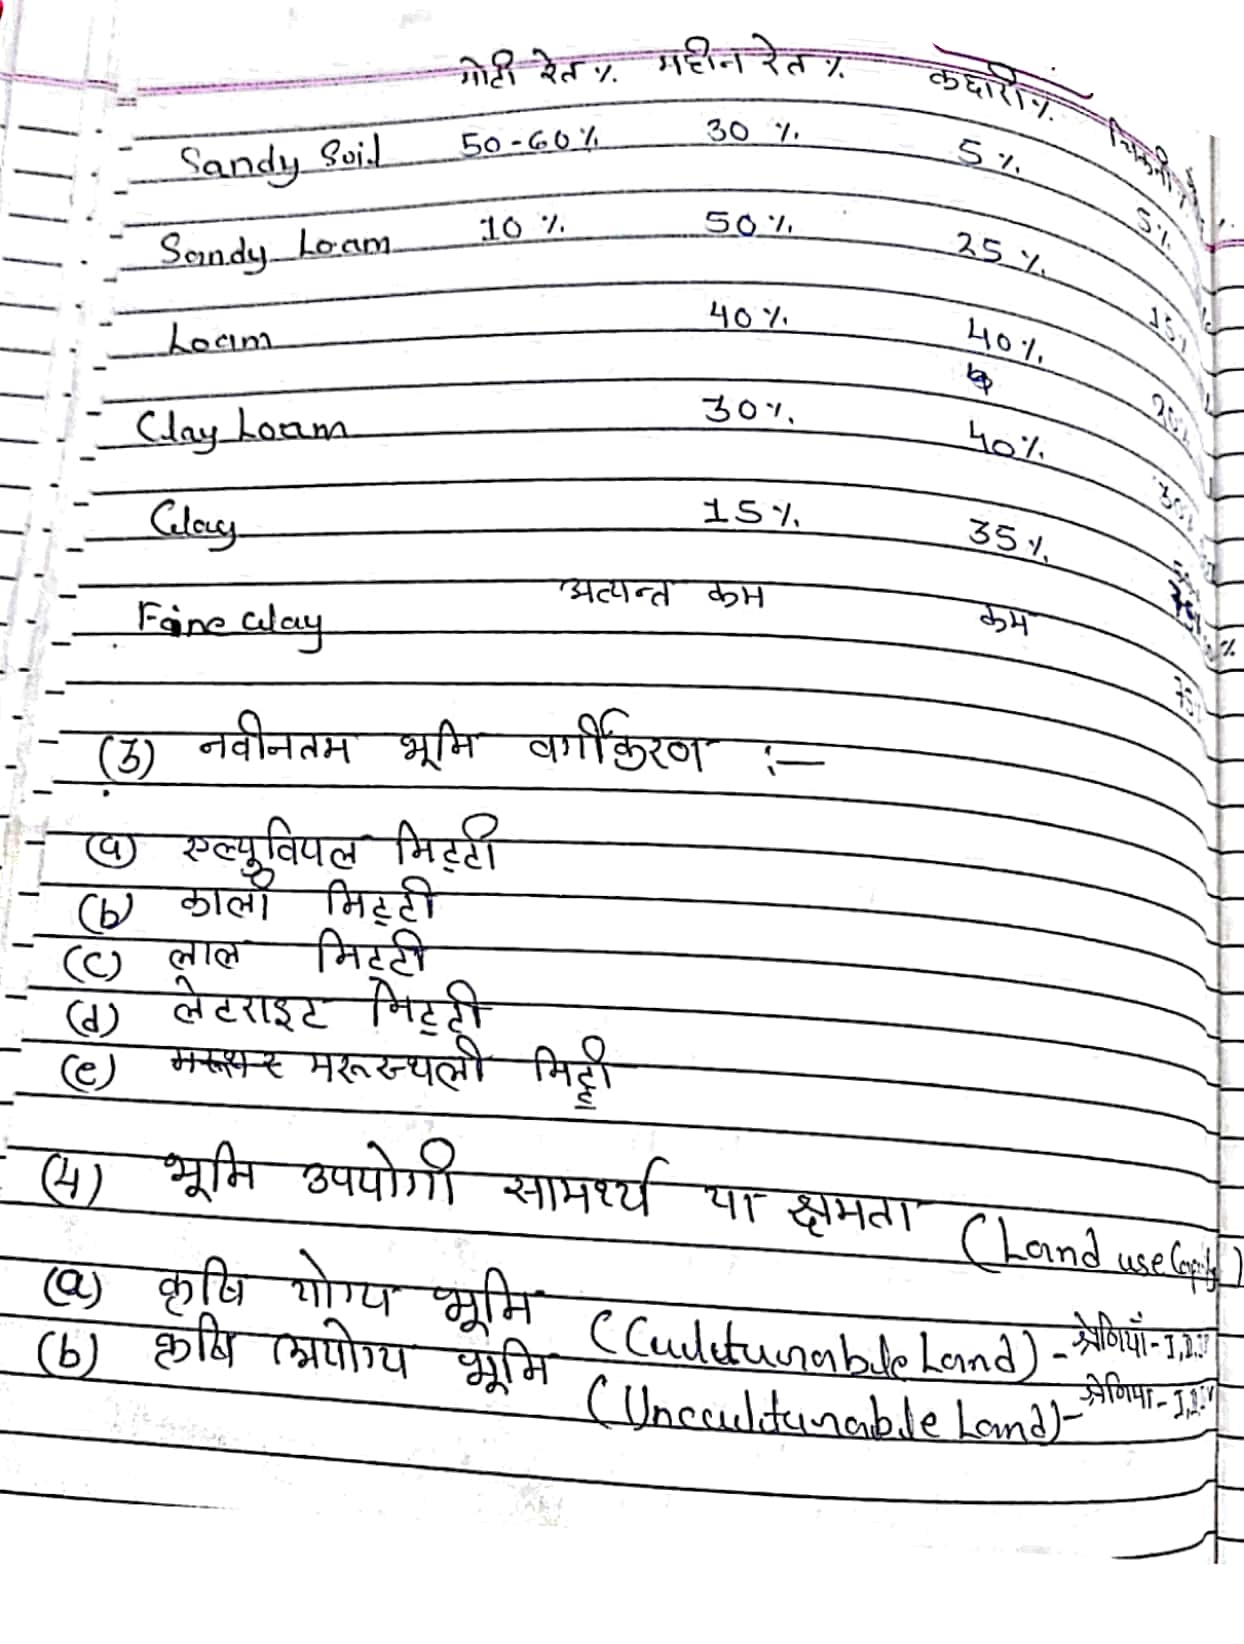 मोटी रेत % महीन रेत % कछारी % चिकनी
Sandy Soil 50-60% 30 % 5 % 5%
Sandy Loam 10 % 50 % 25 % 15%
Loam 40 % 40 % 20%
Clay Loam 30 % 40 % 30%
Clay 15 % 35 %
Faine Clay अत्यन्त कम कम 75
(3) नवीनतम भूमि वर्गीकरण :—
(a) एल्युवियल मिट्टी
(b) काली मिट्टी
(c) लाल मिट्टी
(d) लेटराइट मिट्टी
(e) मरूस्थली मिट्टी
(4) भूमि उपयोगी सामर्थ्य या क्षमता (Land use
(a) कृषि योग्य भूमि (Culuturabile Land) - श्रेणियाँ - I,
(b) कृषि अयोग्य भूमि (Unculturable Land) - श्रेणियाँ - I,